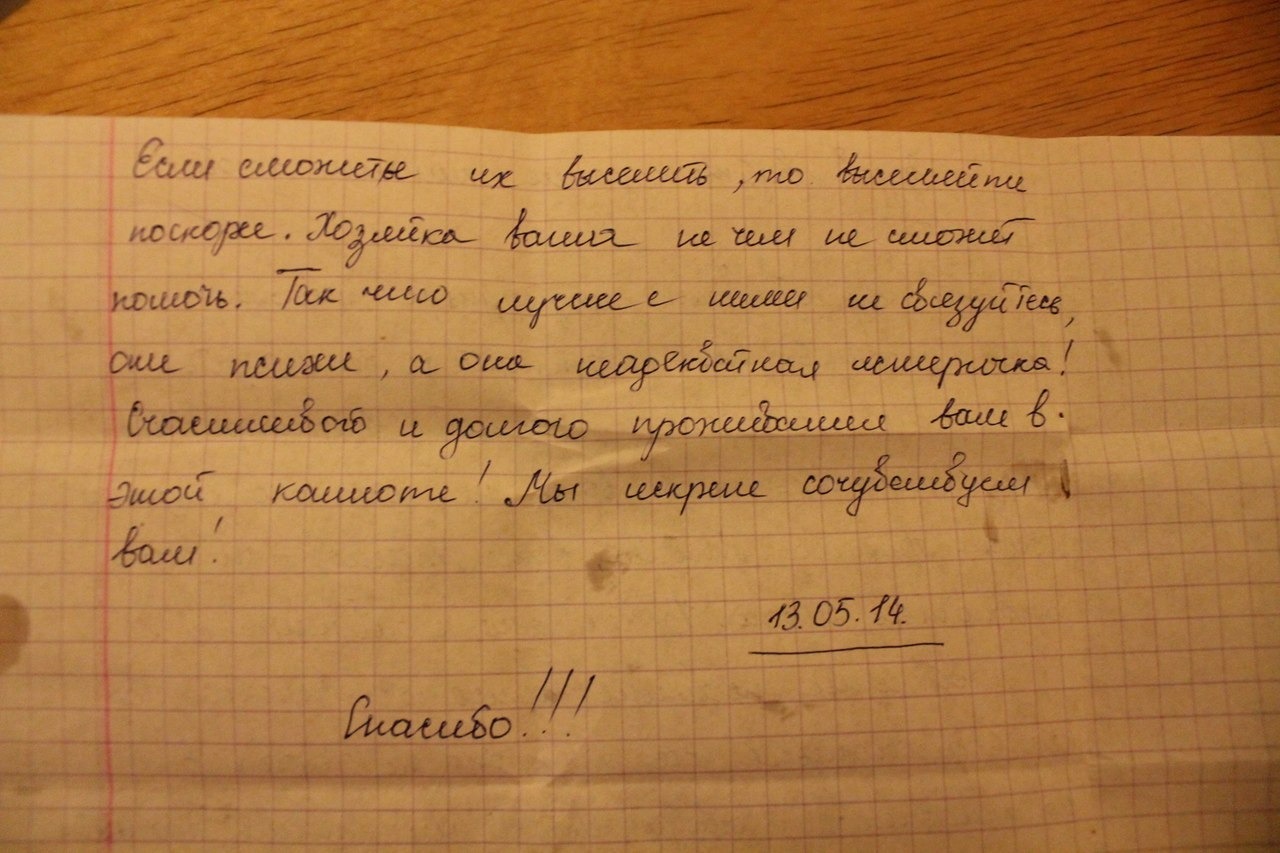 Если сможите их выселить, то выселейти
поскорее. Хозяйка ваша не чем не сможет
помочь. Так что лучше с ними не связуйтесь,
они психи, а она неадекватная истеричка!
Счастливого и долгого проживания вам в
этой комноте! Мы искрене сочувствуем
вам!
13.05.14.
Спасибо!!!